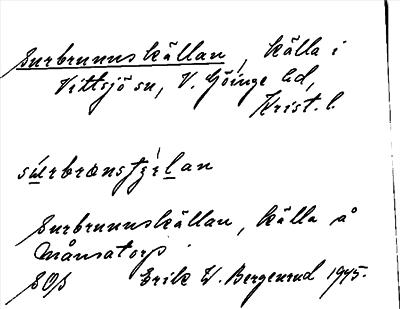 Surbrunnskällan, källa i
Vittsjö sn, V. Göinge hd,
Krist. l.
Surbrunnskällan, källa å
Månsatorp
Erik W. Bergenrud 1945.